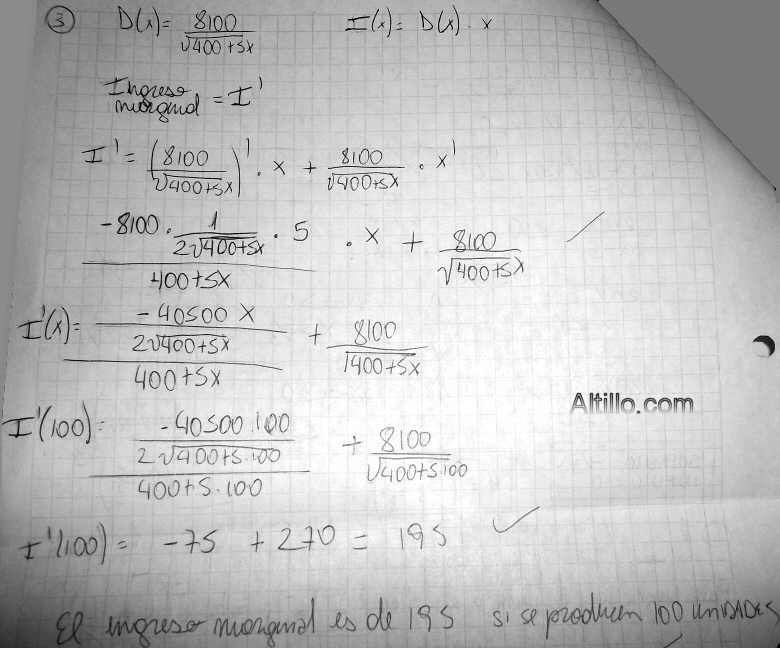 3 D(x) = 8100 / √400+5x I(x) = D(x) · x
Ingreso
marginal = I'
I' = (8100 / √400+5x)' · x + 8100 / √400+5x · x'
-8100 · 1 / 2√400+5x · 5 / 400+5x · x + 8100 / √400+5x
I'(x) = -40500 x / 2√400+5x / 400+5x + 8100 / √400+5x
Altillo.com
I'(100) = -40500.100 / 2√400+5.100 / 400+5.100 + 8100 / √400+5.100
I'(100) = -75 + 270 = 195
El ingreso marginal es de 195 si se producen 100 unidades